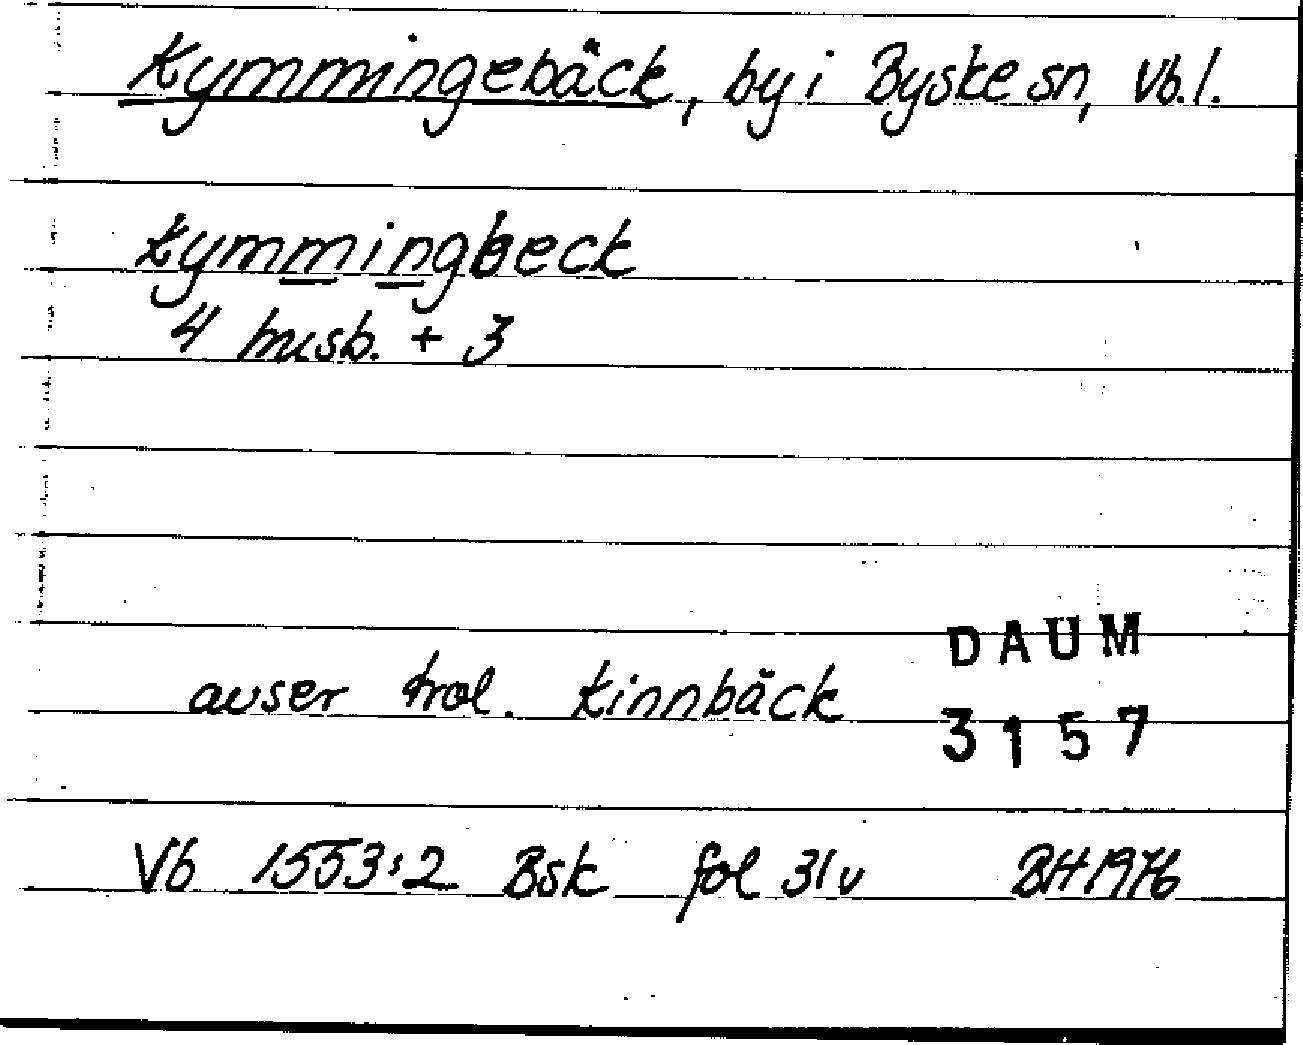 Kymmingebäck, by i Byske sn, Vb. l.
kymmingbeck
4 husb. + 3
avser trol. Kinnbäck
DAUM
3157
Vb 1553:2 Bsk fol 31v BH 1976